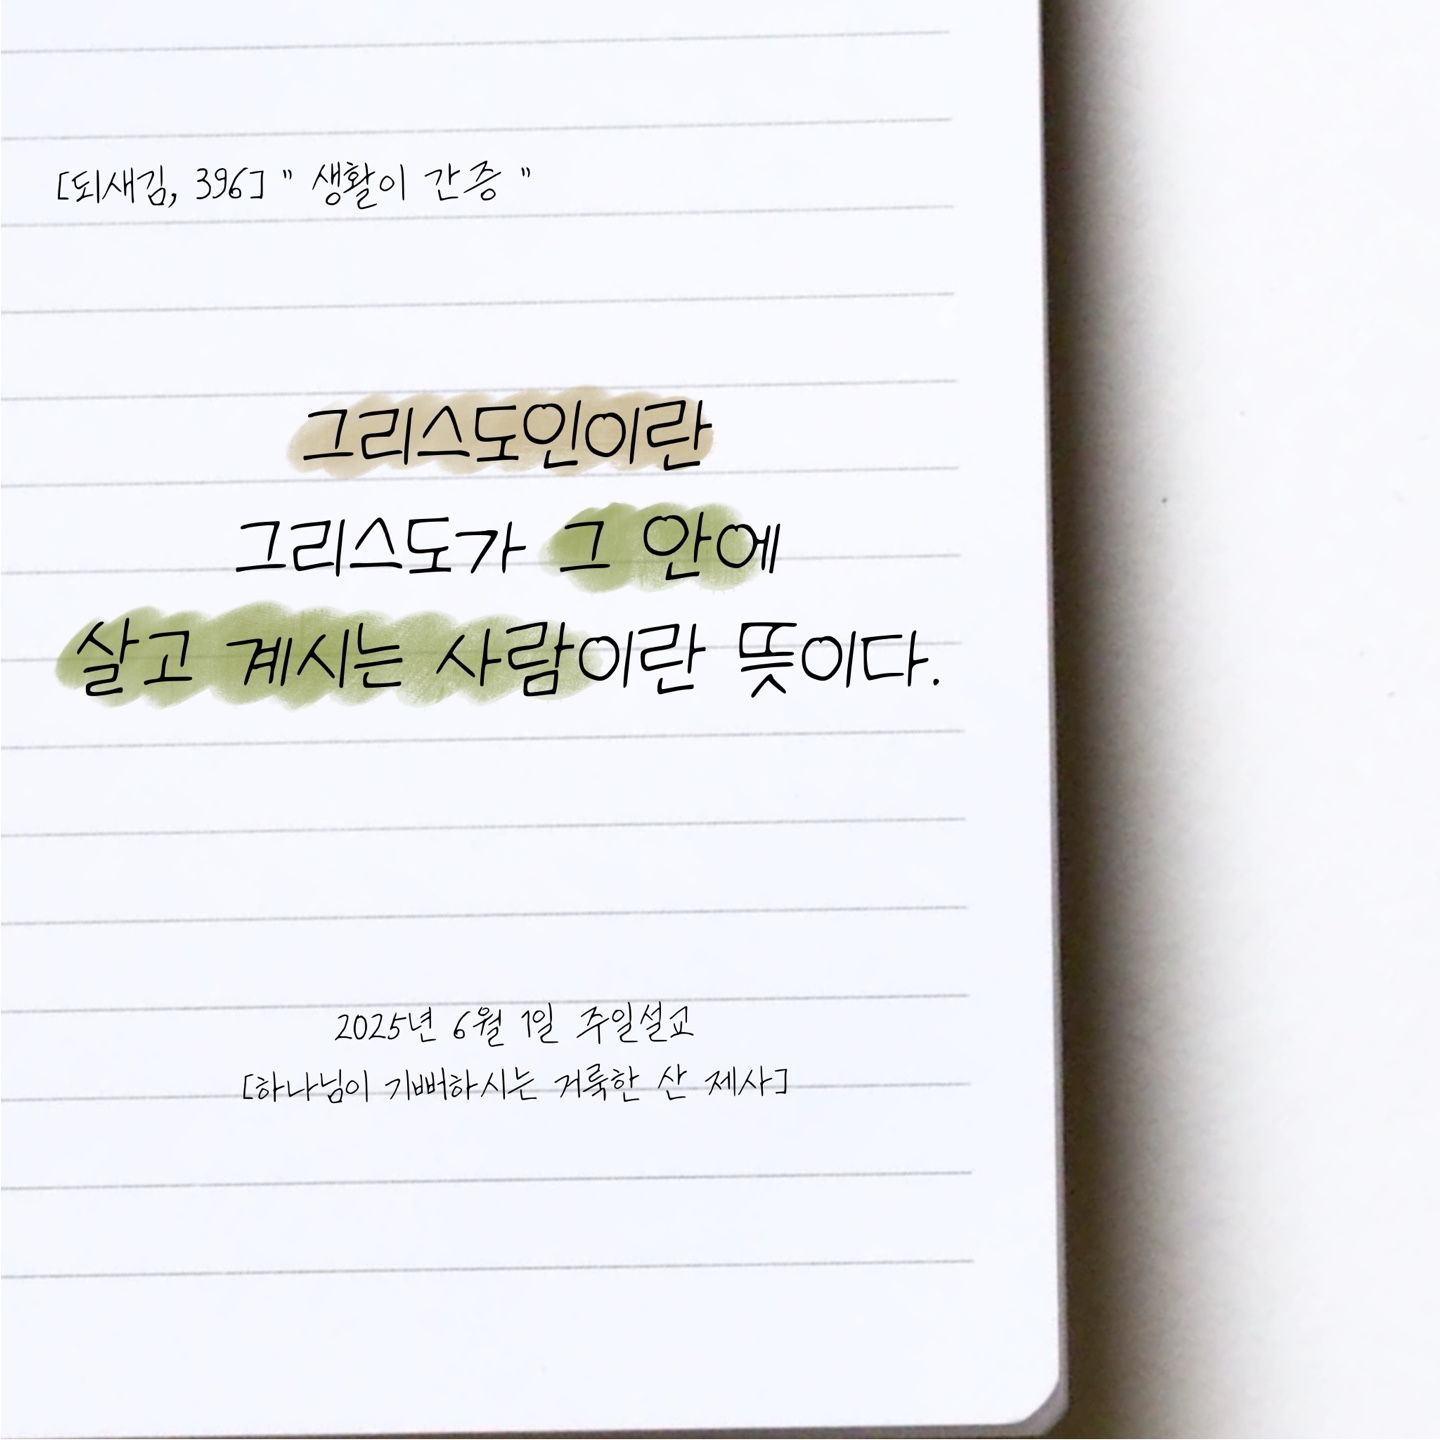 [되새김, 396] " 생활이 간증 "
그리스도인이란
그리스도가 그 안에
살고 계시는 사람이란 뜻이다.
2025년 6월 1일 주일설교
[하나님이 기뻐하시는 거룩한 산 제사]